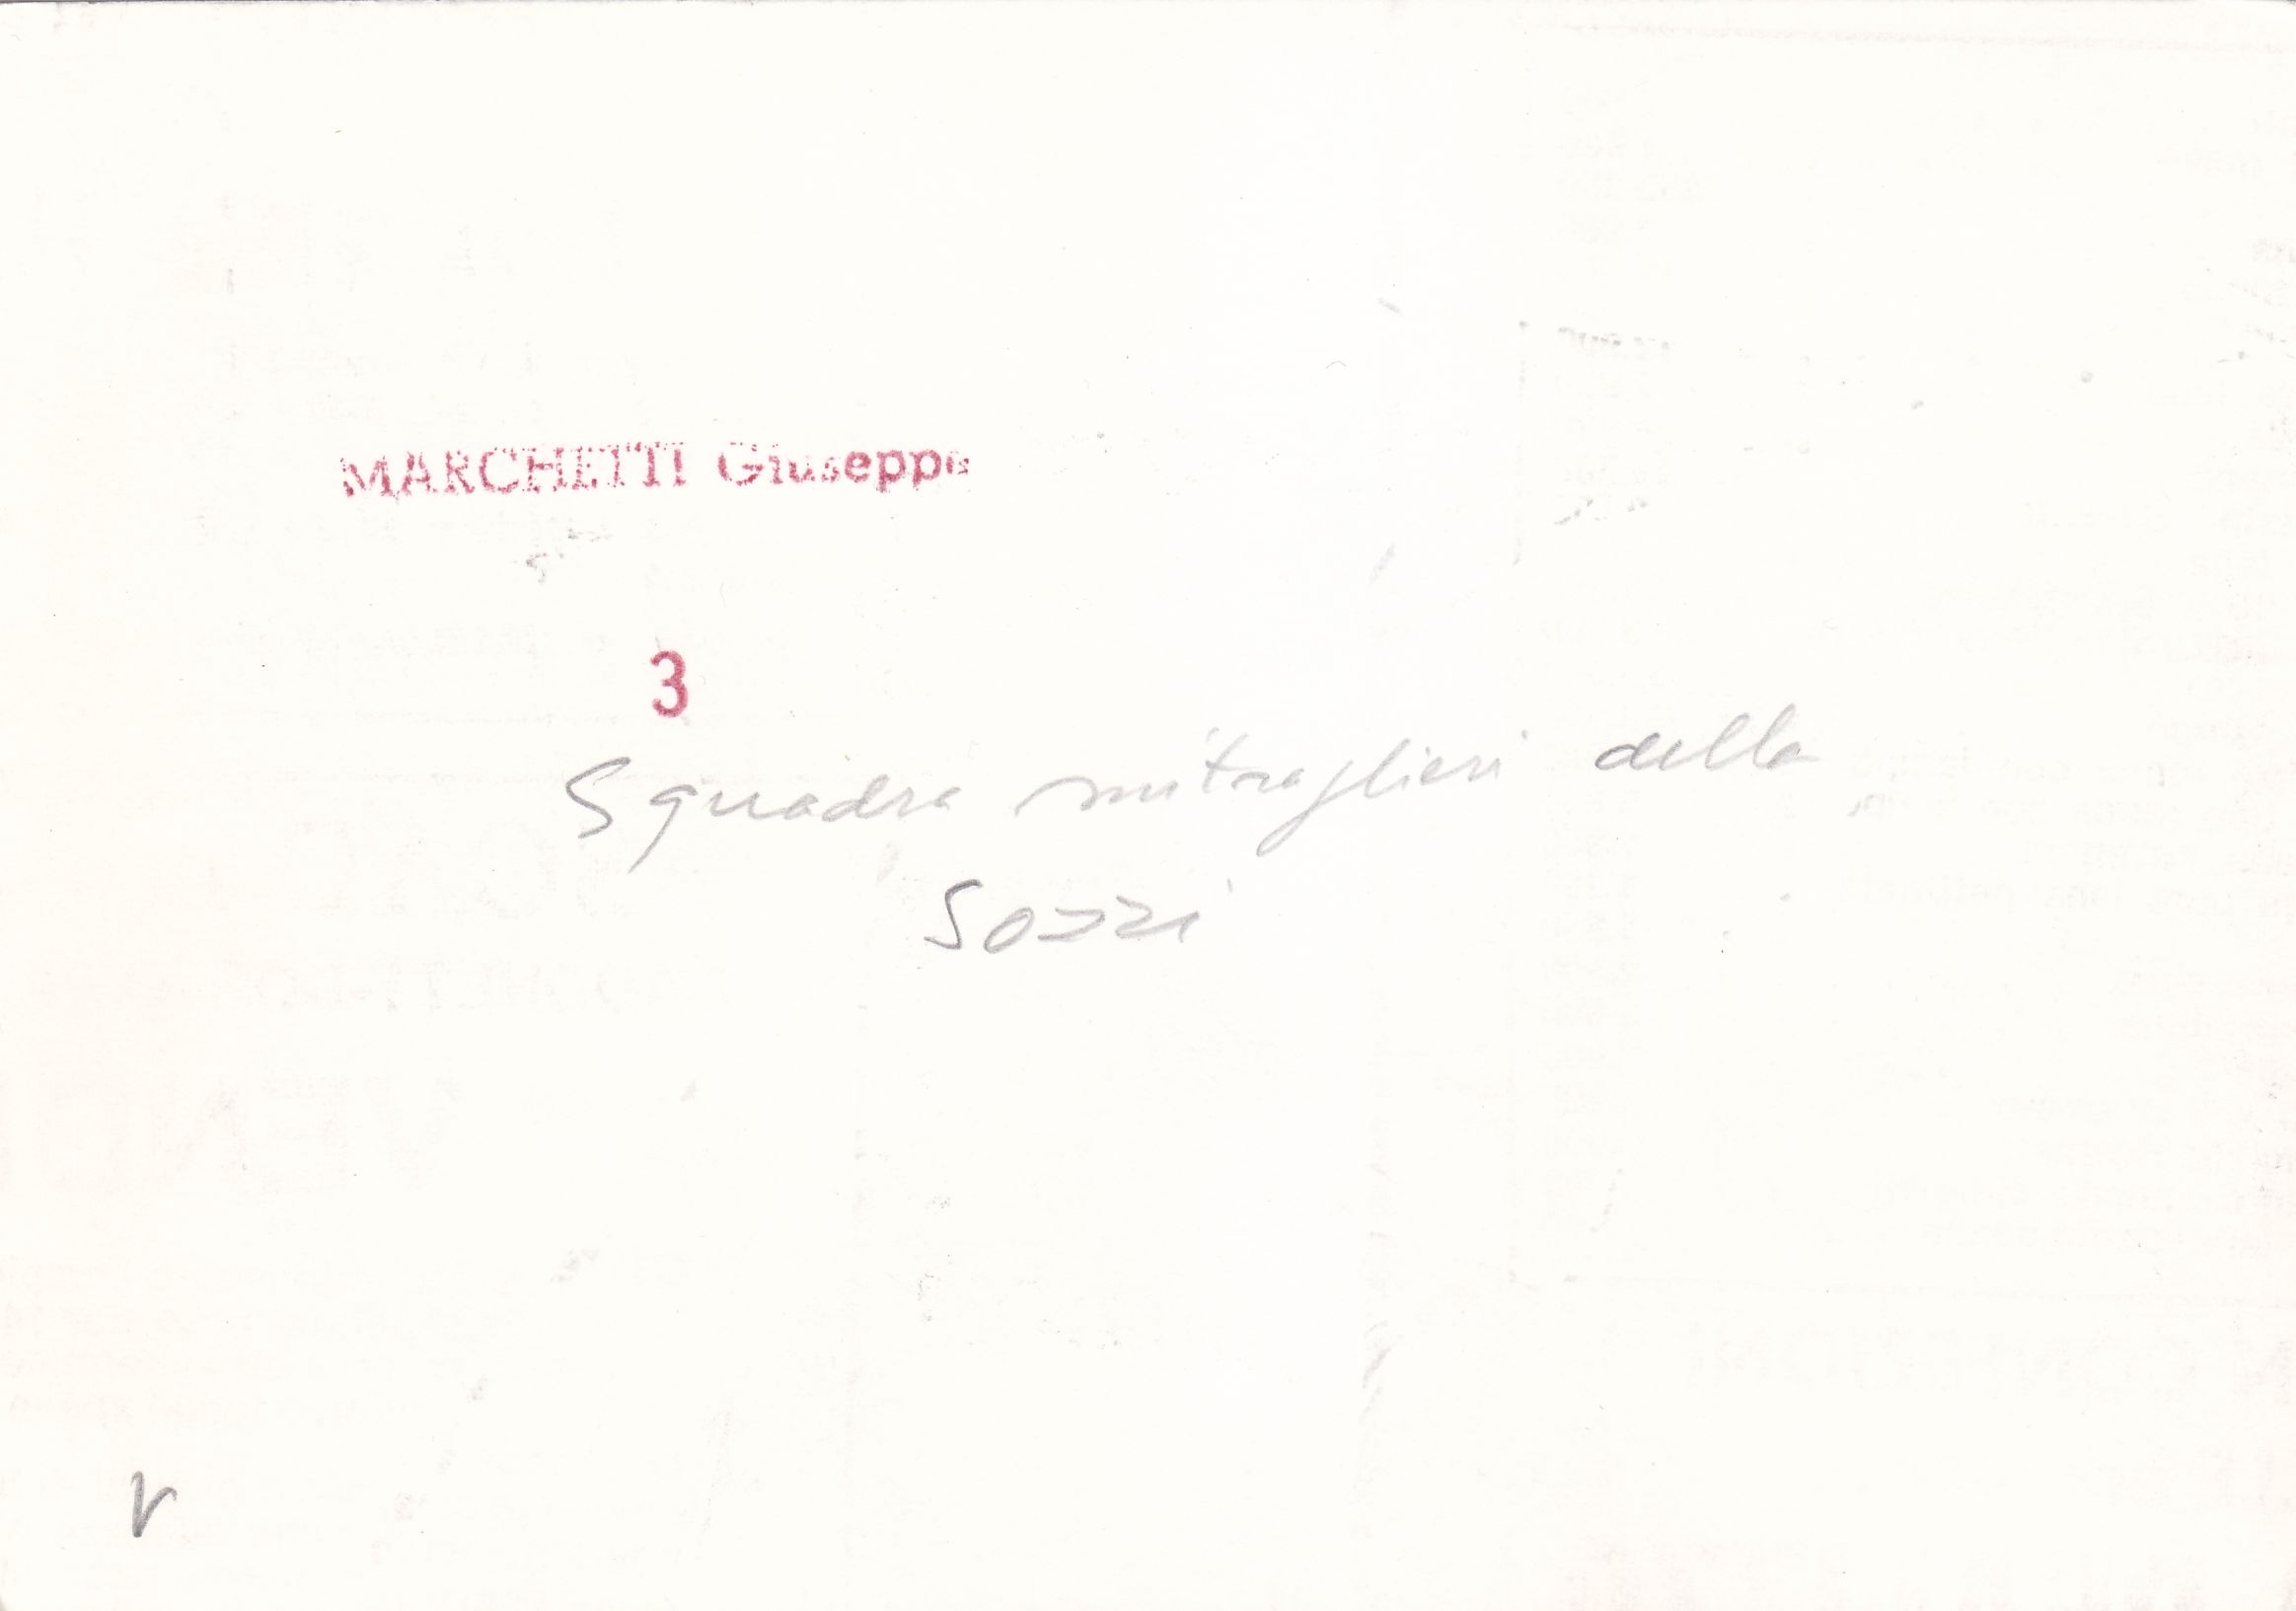 MARCHETTI Giuseppe
3
Squadra mitraglieri della
Sozzi
V